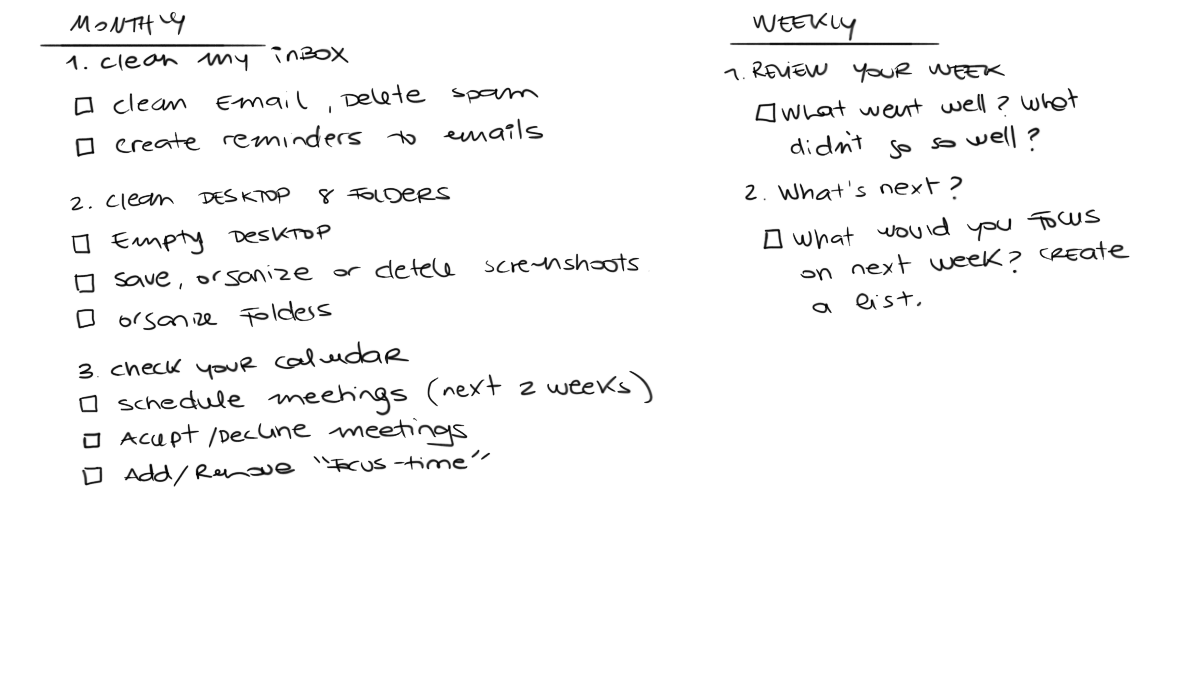 MONTHLY
1. clean my inBOX
clean Email, Delete spam
create reminders to emails
2. clean DESKTOP & FOLDERS
Empty DESKTOP
save, organize or detele screenshoots
organize Folders
3. check your calendar
schedule meetings (next 2 weeks)
Accept/Decline meetings
Add/Remove "Focus-time"
WEEKLY
1. REVIEW YOUR WEEK
What went well? What
didn't go so well?
2. What's next?
What would you Focus
on next week? CREATE
a list.